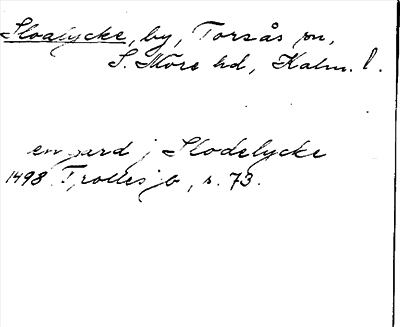 Sloalycke, by, Torsås sn,
S. Möre hd, Kalm. l.
en gard j Slodelycke
1498 Trolles jb, s. 73.